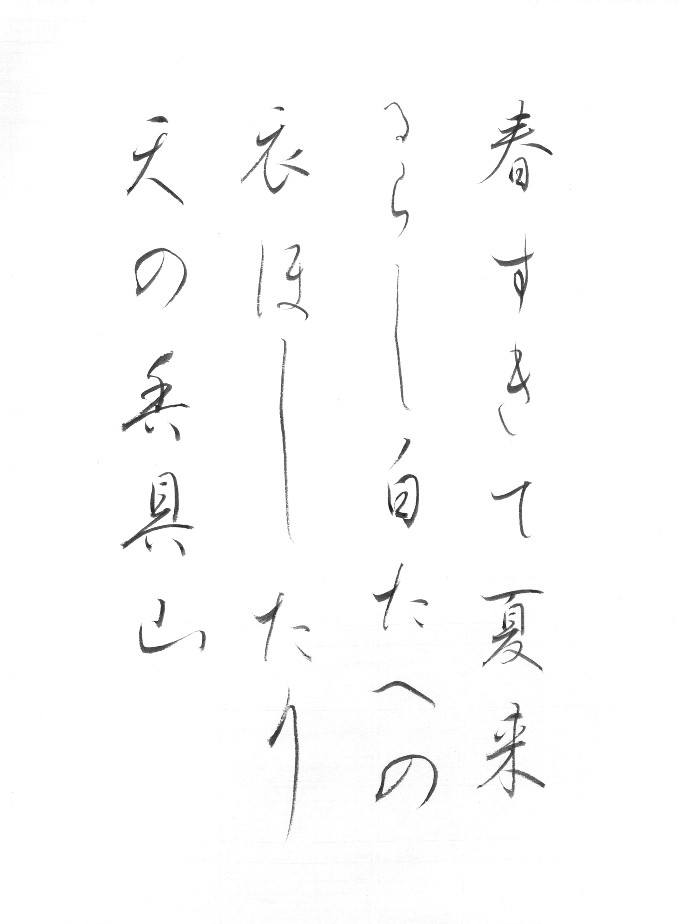 春すきて夏来
るらし白たへの
衣ほしたり
天の香具山